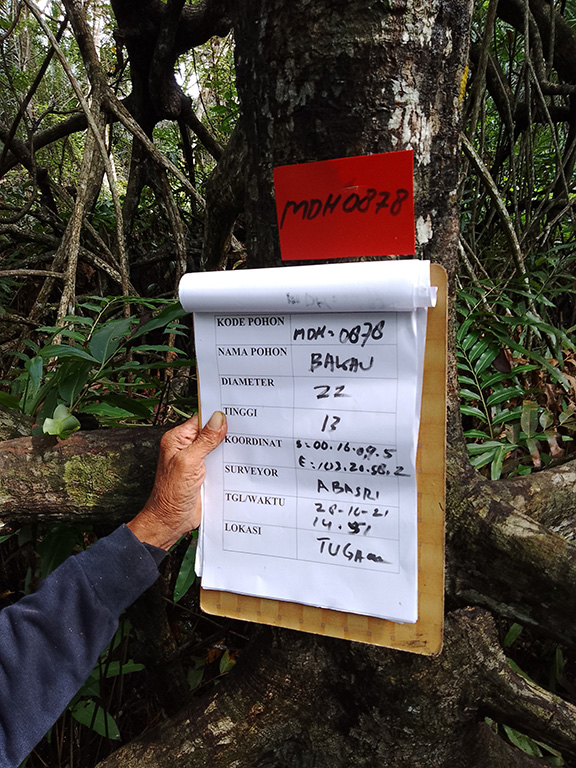 MDH0878
KODE POHON MDH-0878
NAMA POHON BAKAU
DIAMETER 22
TINGGI 13
KOORDINAT S=00.16.09.5
E:103.20.58.2
SURVEYOR ABASRI
TGL/WAKTU
14.51
LOKASI TUGA